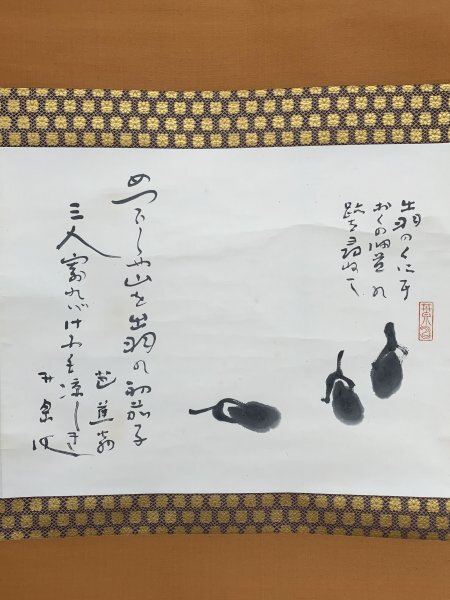 出羽のくに
おくの細道の
跡を尋ねて
めづらしや山を出羽の初茄子
芭蕉翁
三人寄れば
涼しき
井泉水